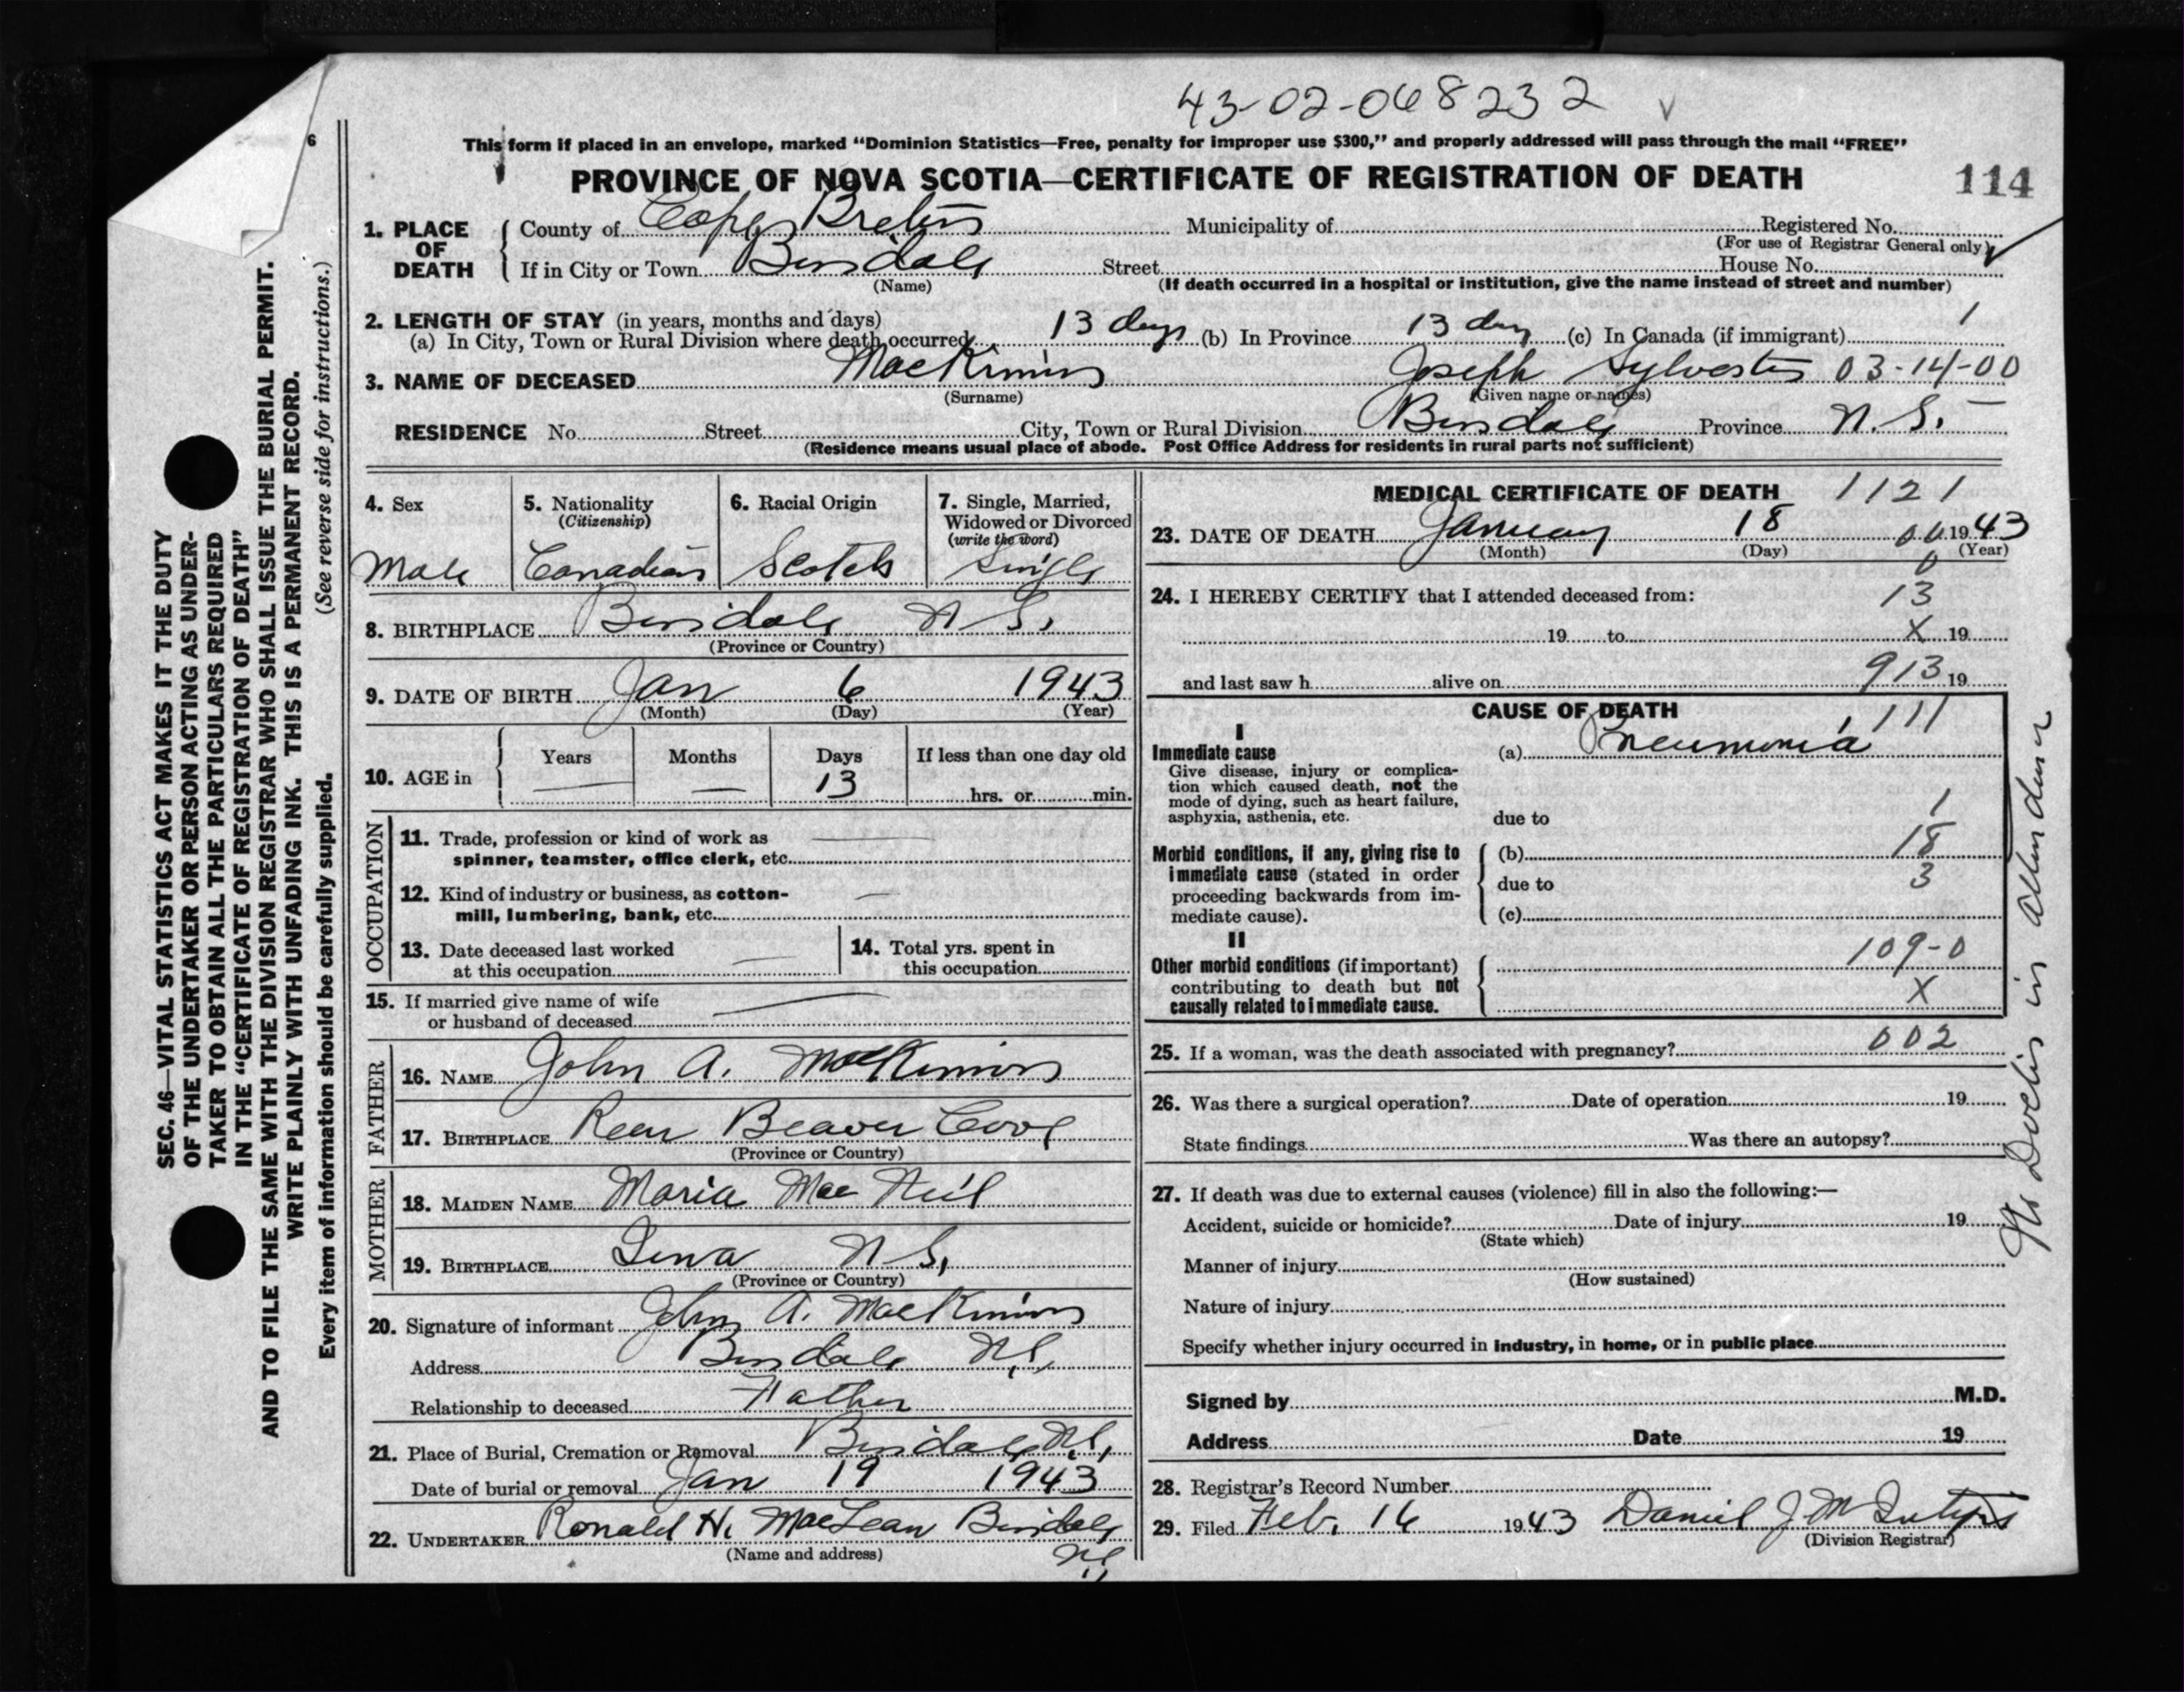 43-02-068232
This form if placed in an envelope, marked “Dominion Statistics—Free, penalty for improper use $300,” and properly addressed will pass through the mail “FREE”
PROVINCE OF NOVA SCOTIA—CERTIFICATE OF REGISTRATION OF DEATH 114
1. PLACE OF DEATH County of Cape Breton Municipality of Registered No.
(For use of Registrar General only)
If in City or Town Bensdale Street House No.
(Name) (If death occurred in a hospital or institution, give the name instead of street and number)
2. LENGTH OF STAY (in years, months and days)
(a) In City, Town or Rural Division where death occurred 13 days (b) In Province 13 days (c) In Canada (if immigrant) 1
3. NAME OF DECEASED MacKinnon Joseph Sylvester 03-14-00
(Surname) (Given name or names)
RESIDENCE No. Street City, Town or Rural Division Province N.S.
(Residence means usual place of abode. Post Office Address for residents in rural parts not sufficient)
4. Sex 5. Nationality (Citizenship) 6. Racial Origin 7. Single, Married, Widowed or Divorced (write the word)
Male Canadian Scotch Single
8. BIRTHPLACE N.S.
(Province or Country)
9. DATE OF BIRTH Jan 6 1943
(Month) (Day) (Year)
10. AGE in Years Months Days If less than one day old
13 hrs. or min.
OCCUPATION
11. Trade, profession or kind of work as
spinner, teamster, office clerk, etc.
12. Kind of industry or business, as cotton-
mill, lumbering, bank, etc.
13. Date deceased last worked
at this occupation
14. Total yrs. spent in
this occupation
15. If married give name of wife
or husband of deceased
FATHER
16. NAME John A. MacKinnon
17. BIRTHPLACE Rear Beaver Cove
(Province or Country)
MOTHER
18. MAIDEN NAME Maria MacNeil
19. BIRTHPLACE Iona N.S.
(Province or Country)
20. Signature of informant John A. MacKinnon
Address N.S.
Relationship to deceased Father
21. Place of Burial, Cremation or Removal N.S.
Date of burial or removal Jan 19 1943
22. UNDERTAKER Ronald H. MacLean
(Name and address) N.S.
MEDICAL CERTIFICATE OF DEATH 1121
23. DATE OF DEATH January 18 1943
(Month) (Day) (Year)
24. I HEREBY CERTIFY that I attended deceased from: 13
19 to X 19
and last saw h alive on 913 19
CAUSE OF DEATH 111
I
Immediate cause (a) Pneumonia
Give disease, injury or complica-
tion which caused death, not the
mode of dying, such as heart failure,
asphyxia, asthenia, etc. due to 1
Morbid conditions, if any, giving rise to (b) 18
immediate cause (stated in order due to 3
proceeding backwards from im-
mediate cause). (c)
II
Other morbid conditions (if important) 109-0
contributing to death but not
causally related to immediate cause. X
25. If a woman, was the death associated with pregnancy? 002
26. Was there a surgical operation? Date of operation 19
State findings Was there an autopsy?
27. If death was due to external causes (violence) fill in also the following:—
Accident, suicide or homicide? Date of injury 19
(State which)
Manner of injury
(How sustained)
Nature of injury
Specify whether injury occurred in industry, in home, or in public place
Signed by M.D.
Address Date 19
28. Registrar's Record Number
29. Filed Feb. 16 1943 Daniel J. McIntyre
(Division Registrar)
No Doctor in attendance
SEC. 46—VITAL STATISTICS ACT MAKES IT THE DUTY
OF THE UNDERTAKER OR PERSON ACTING AS UNDER-
TAKER TO OBTAIN ALL THE PARTICULARS REQUIRED
IN THE “CERTIFICATE OF REGISTRATION OF DEATH”
AND TO FILE THE SAME WITH THE DIVISION REGISTRAR WHO SHALL ISSUE THE BURIAL PERMIT.
WRITE PLAINLY WITH UNFADING INK. THIS IS A PERMANENT RECORD.
Every item of information should be carefully supplied. (See reverse side for instructions.)
6